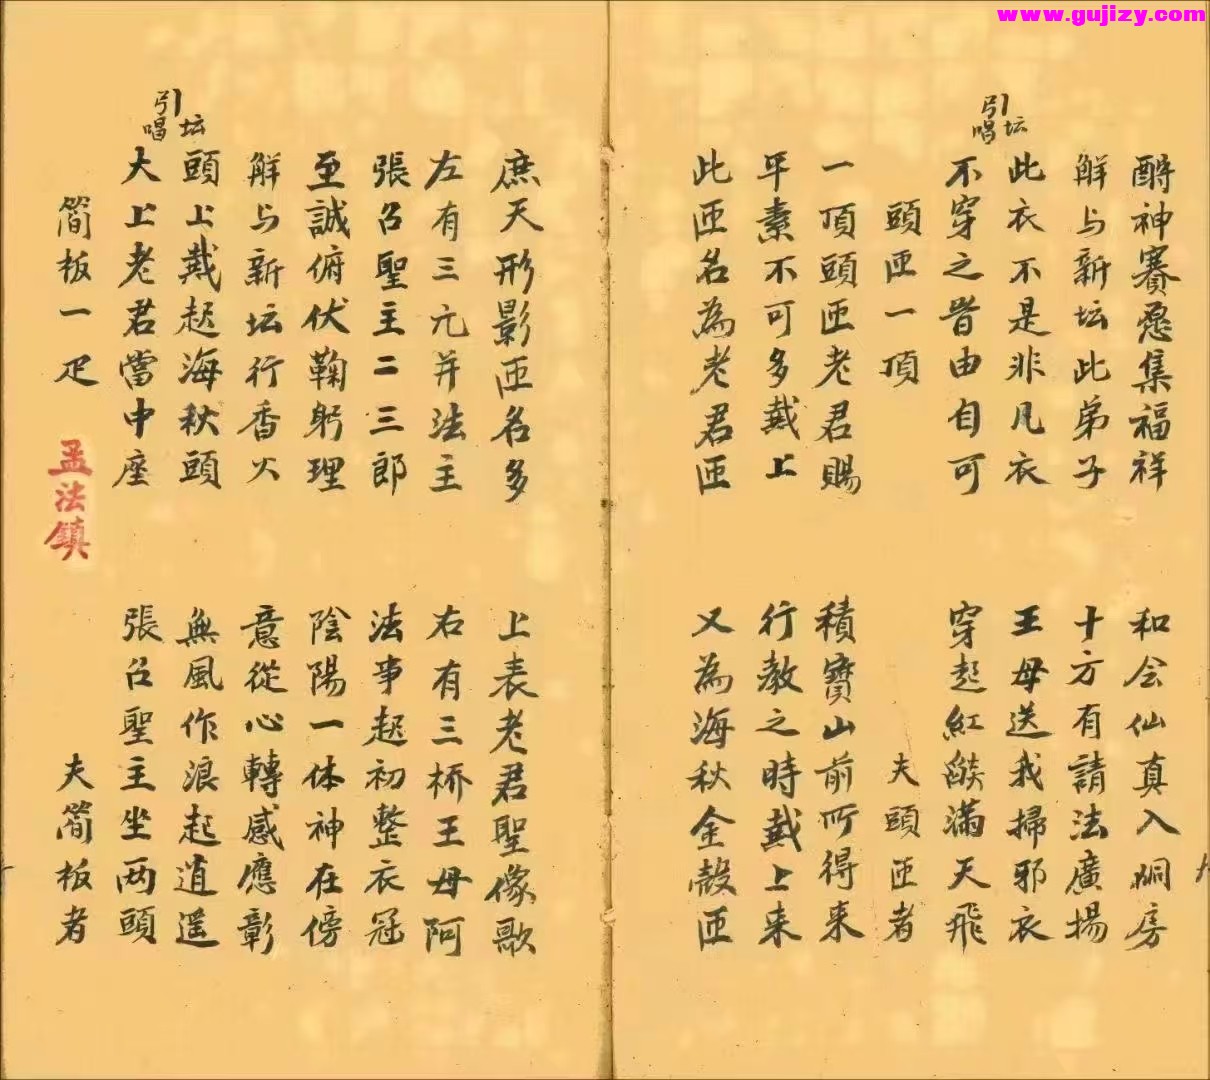 www.gujizy.com
酧神賽愿集福祥
和会仙真入峒房
解与新坛此弟子
十方有請法廣揚
此衣不是非凡衣
王母送我掃邪衣
引坛唱
不穿之昔由自可
穿起紅燄滿天飛
頭匝一頂
夫頭匝者
一頂頭匝老君賜
積寶山前所得来
平素不可多戴上
行教之時戴上来
此匝名為老君匝
又為海秋金殼匝
庶天形影匝名多
上表老君聖像歌
左有三元并法主
右有三桥王母阿
張召聖主二三郎
法事起初整衣冠
至誠俯伏鞠躬理
陰陽一体神在傍
解与新坛行香火
意從心轉感應彰
頭上戴起海秋頭
無風作浪起逍遥
引坛唱
大上老君當中座
張召聖主坐两頭
简板一疋
夫简板者
孟法鎮